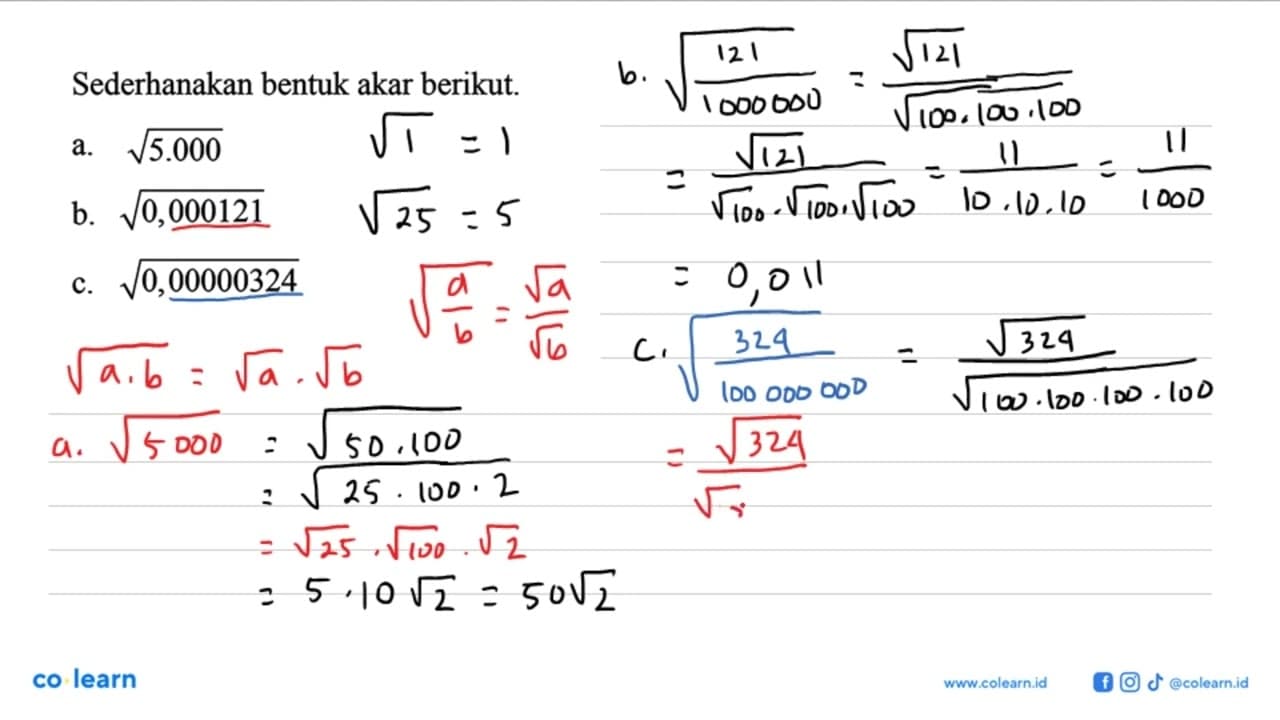 Sederhanakan bentuk akar berikut.
a. √5.000
b. √0,000121
c. √0,00000324
√1 = 1
√25 = 5
√(a/b) = √a/√b
√(a.b) = √a . √b
a. √5000 = √(50.100)
= √(25 . 100 . 2)
= √25 . √100 . √2
= 5 . 10 √2 = 50√2
b. √(121/1000000) = √121/√(100.100.100)
= √121/(√100.√100.√100) = 11/(10.10.10) = 11/1000
= 0,011
c. √(324/100 000 000) = √324/√(100.100.100.100)
= √324/√
co learn
www.colearn.id
@colearn.id